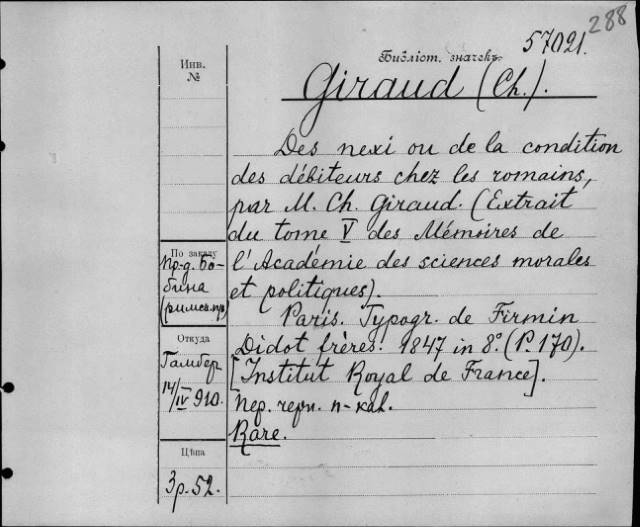 288
57021.
Библіот. значекъ
Инв.
№
Giraud (Ch.).
Des nexi ou de la condition
des débiteurs chez les romains,
par M. Ch. Giraud. (Extrait
du tome V des Mémoires de
l'Académie des sciences morales
et politiques).
Paris. Typogr. de Firmin
Didot frères. 1847 in 8º. (P. 170).
[Institut Royal de France].
Пер. черн. п-кал.
Rare.
По заказу
Пр-д. Бо-
бина
(римск. пр.)
Откуда
Гамбер
14/IV 910.
Цѣна
3 р. 52.